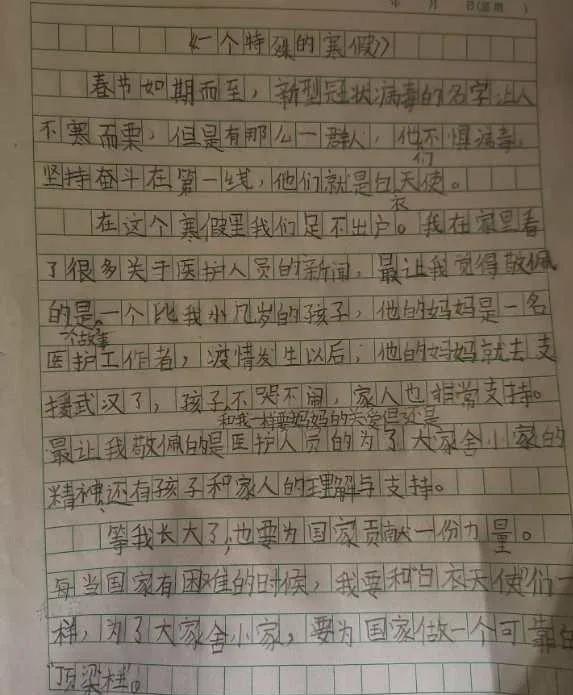 年 月 日(星期 )
《一个特殊的寒假》
春节如期而至，新型冠状病毒的名字让人
不寒而栗，但是有那么一群人，他们不惧病毒，
坚持奋斗在第一线，他们就是白衣天使。
在这个寒假里我们足不出户。我在家里看
了很多关于医护人员的新闻，最让我觉得敬佩
的是，一个比我小几岁的孩子，他的妈妈是一名
个故事
医护工作者，疫情发生以后，他的妈妈就去支
援武汉了，孩子不哭不闹，家人也非常支持。
和我一样要妈妈的关爱但还是
最让我敬佩的是医护人员的为了大家舍小家的
精神，还有孩子和家人的理解与支持。
等我长大了，也要为国家贡献一份力量。
每当国家有困难的时候，我要和“白衣天使”们一
样，为了大家舍小家，要为国家做一个可靠的
“顶梁柱”。